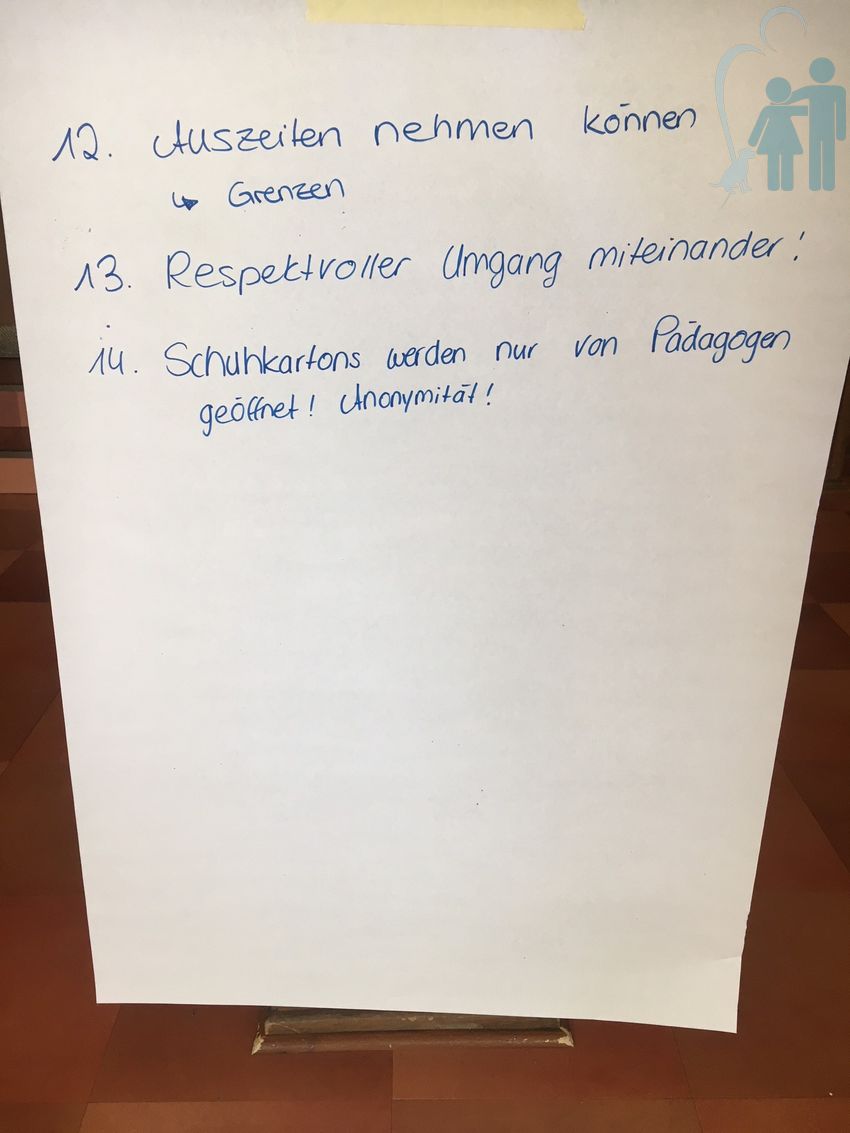 12. Auszeiten nehmen können
↳ Grenzen
13. Respektvoller Umgang miteinander!
14. Schuhkartons werden nur von Pädagogen
geöffnet! Anonymität!